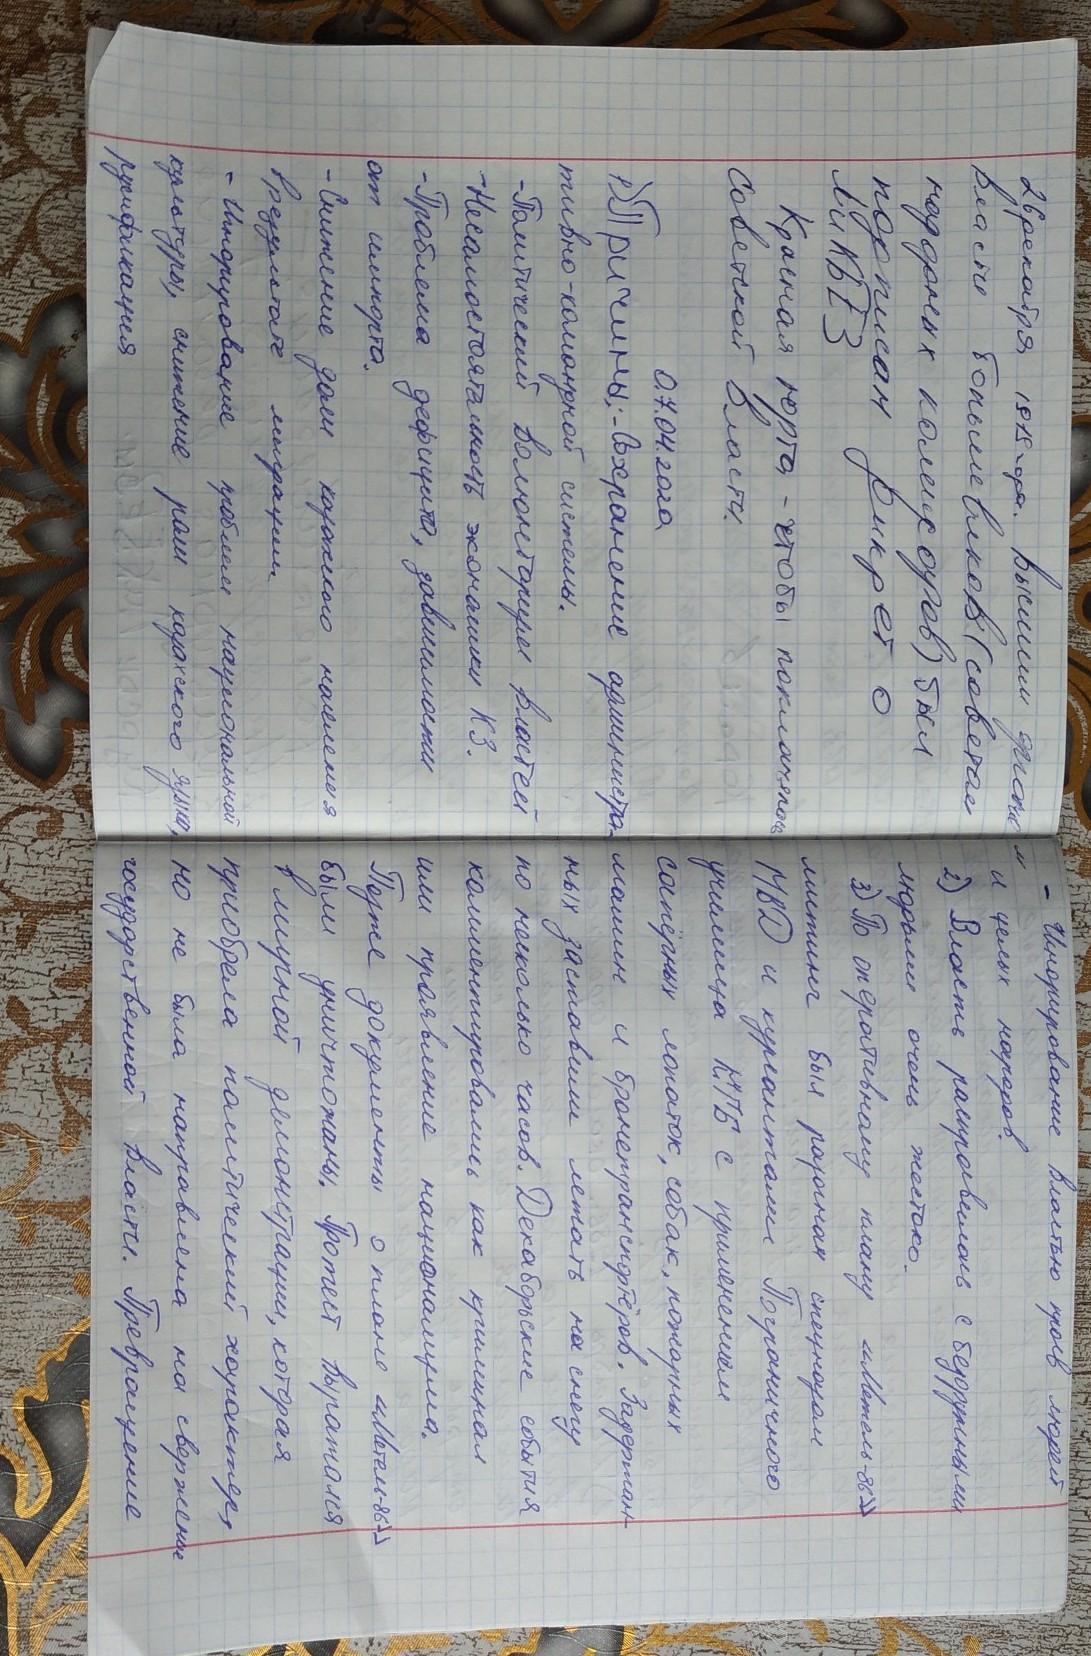 26 декабря 1919 года. Высшим органом
власти большевиков (советом
народных комиссаров) был
подписан Дикрет о
ЛиКБЕЗ
Красная юрта - чтобы поклонялось
Советской Власти.
07.04.2022
1) Причины: - Сохранение администра-
тивно-командной системы.
- Политический волюнтаризм властей
- Несамостоятельность экономики КЗ.
- Проблема дефицита, зависимости
от импорта.
- Снижение доли казахского населения
в результате миграции.
- Игнорирование проблем национальной
культуры, снижение роли казахского языка,
русификация
- Игнорирование властью прав людей
и целых народов.
2) Власть расправилась с безоружными
людьми очень жестоко.
3) По оперативному плану «Метель-86»
митинг был разогнан спецназом
МВД и курсантами Пограничного
училища КГБ с применением
сапёрных лопаток, собак, пожарных
машин и бронетранспортёров. Задержан-
ных заставили лежать на снегу
по несколько часов. Декабрьские события
комментировались как криминал
или проявление национализма.
Позже документы о плане «Метель-86»
были уничтожаны. Протест выражался
в мирной демонстрации, которая
приобрела политический характер,
но не была направлена на свержение
государственной власти. Превращение